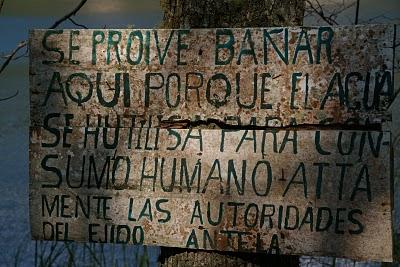 SE PROIVE BAÑAR
AQUI PORQUE El AGUA
SE HUTILISA PARA CON-
SUMO HUMANO - ATTA
MENTE LAS AUTORIDADES
DEL EJIDO ANTELA